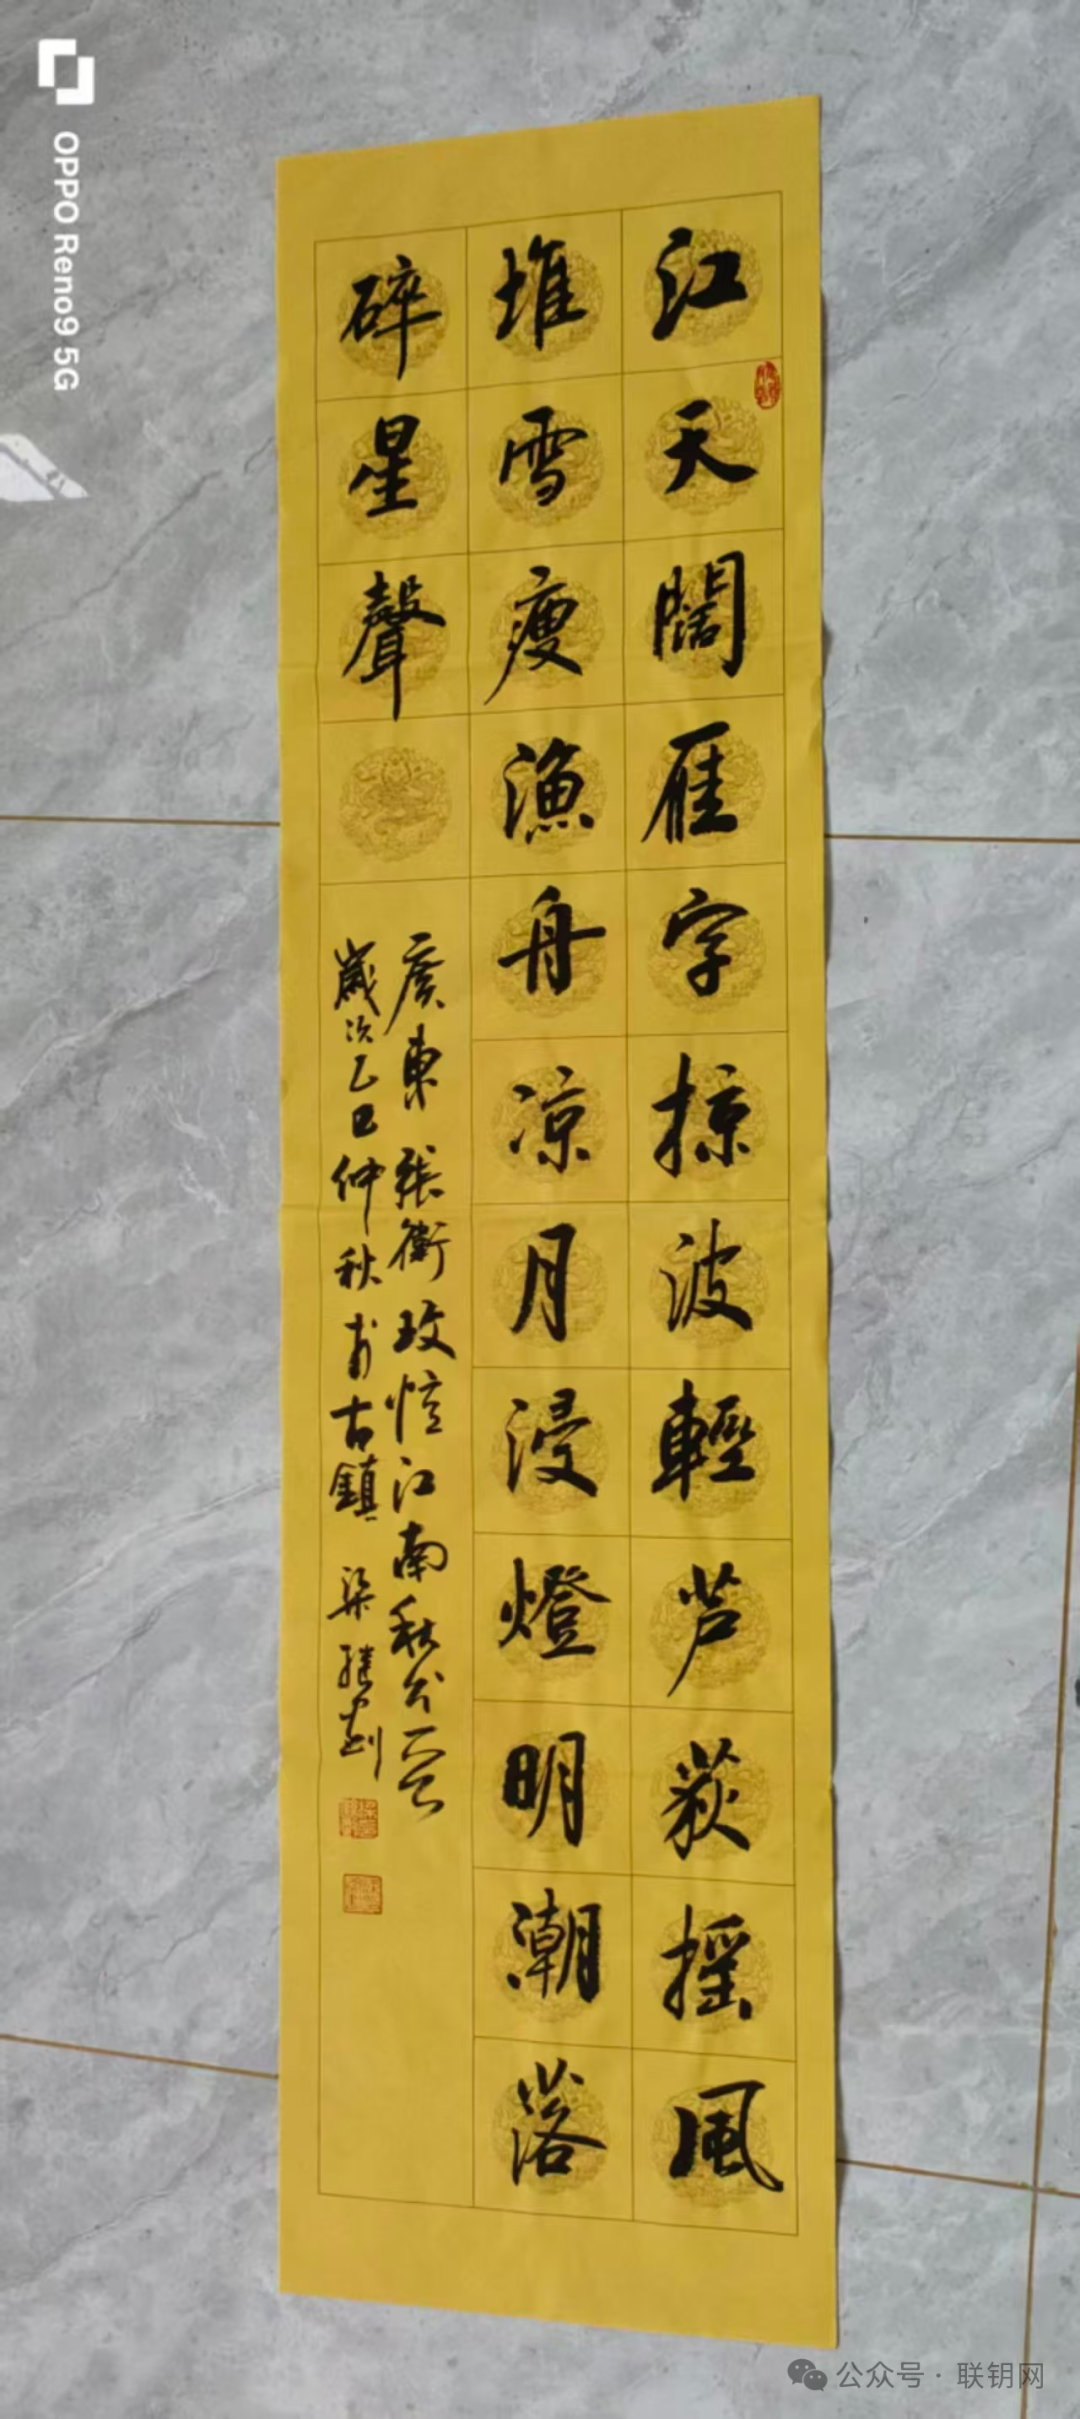 江天闊雁字掠波輕芦荻摇風
堆雪瘦漁舟凉月浸燈明潮落
碎星聲
廣東張衛玫憶江南秋
歲次乙巳仲秋於古鎮 梁
OPPO Reno9 5G
公众号 · 联钥网